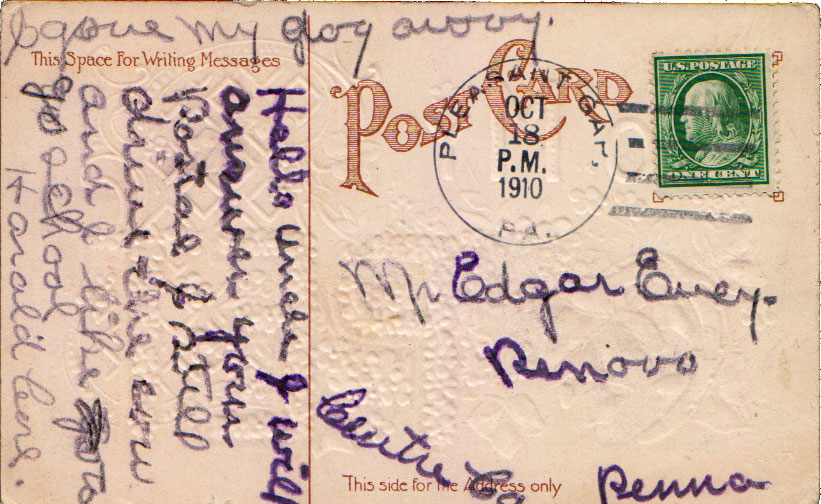 I gave my dog away.
This Space For Writing Messages
Hallo Uncle I will
answer your
Postal I still
drive the cow
and I like to
go school
Harald
Post Card
PLEASANT GAP,
OCT
18
P.M.
1910
PA.
U.S. POSTAGE
ONE CENT
Mr Edgar Evey.
Renovo
Centre Co
Penna
This side for the Address only